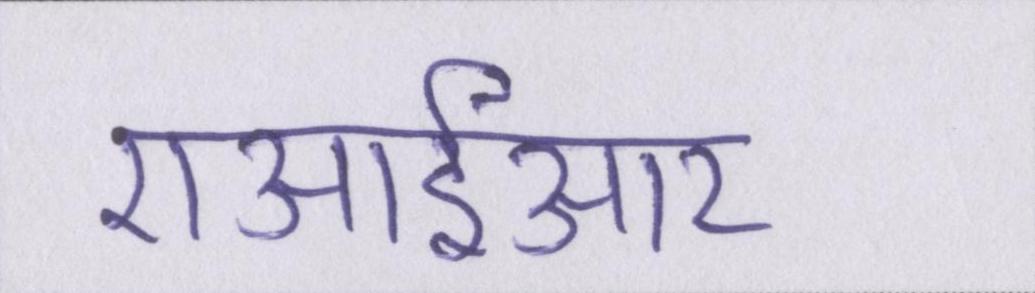 एआईआर